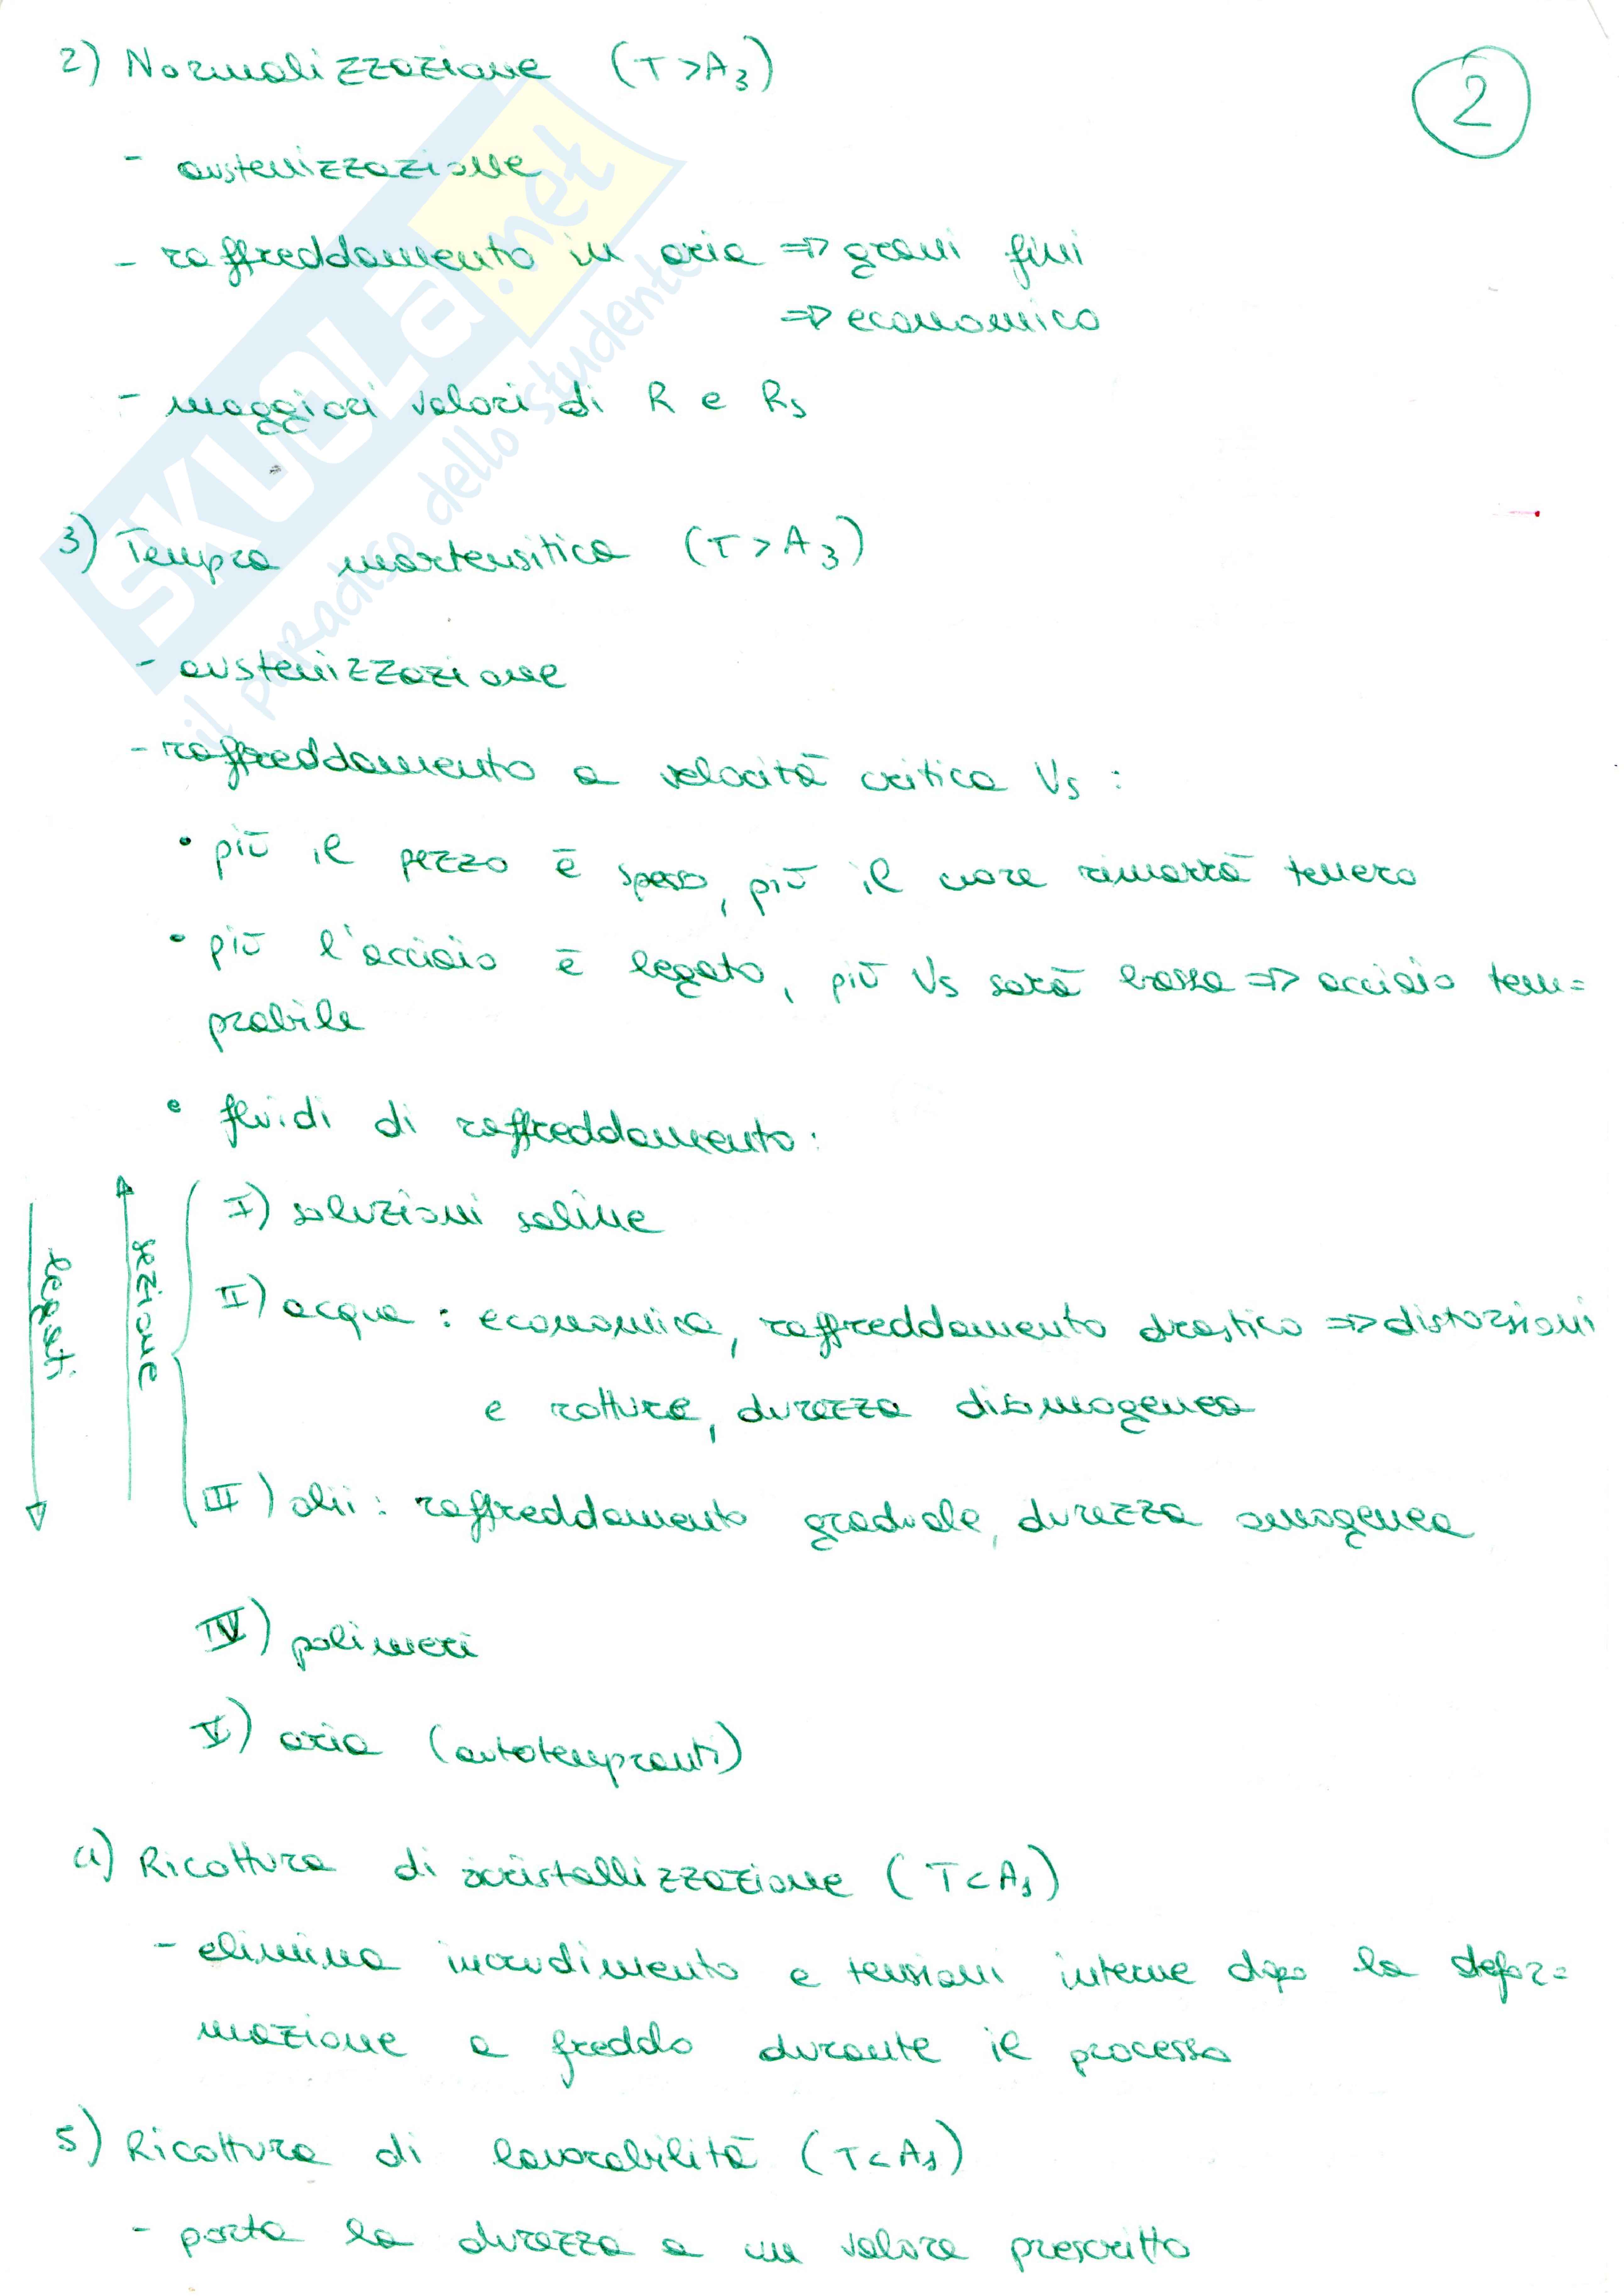 2) Normalizzazione (T > A3)
2
- austenizzazione
- raffreddamento in aria => grani fini
=> economico
- maggiori valori di R e Rs
3) Tempra martensitica (T > A3)
- austenizzazione
- raffreddamento a velocità critica Vs :
• più il pezzo è spesso, più il cuore rimarrà tenero
• più l'acciaio è legato, più Vs sarà bassa => acciaio tem=
prabile
• fluidi di raffreddamento:
legati
sezione
I) soluzioni saline
II) acqua : economica, raffreddamento drastico => distorsioni
e rotture, durezza disomogenea
III) olii : raffreddamento graduale, durezza omogenea
IV) polimeri
V) aria (autotempranti)
4) Ricottura di ricristallizzazione (T < A1)
- elimina incrudimento e tensioni interne dopo la defor=
mazione a freddo durante il processo
5) Ricottura di lavorabilità (T < A1)
- porta la durezza a un valore prescritto
SKUOLA.net
il paradiso dello studente